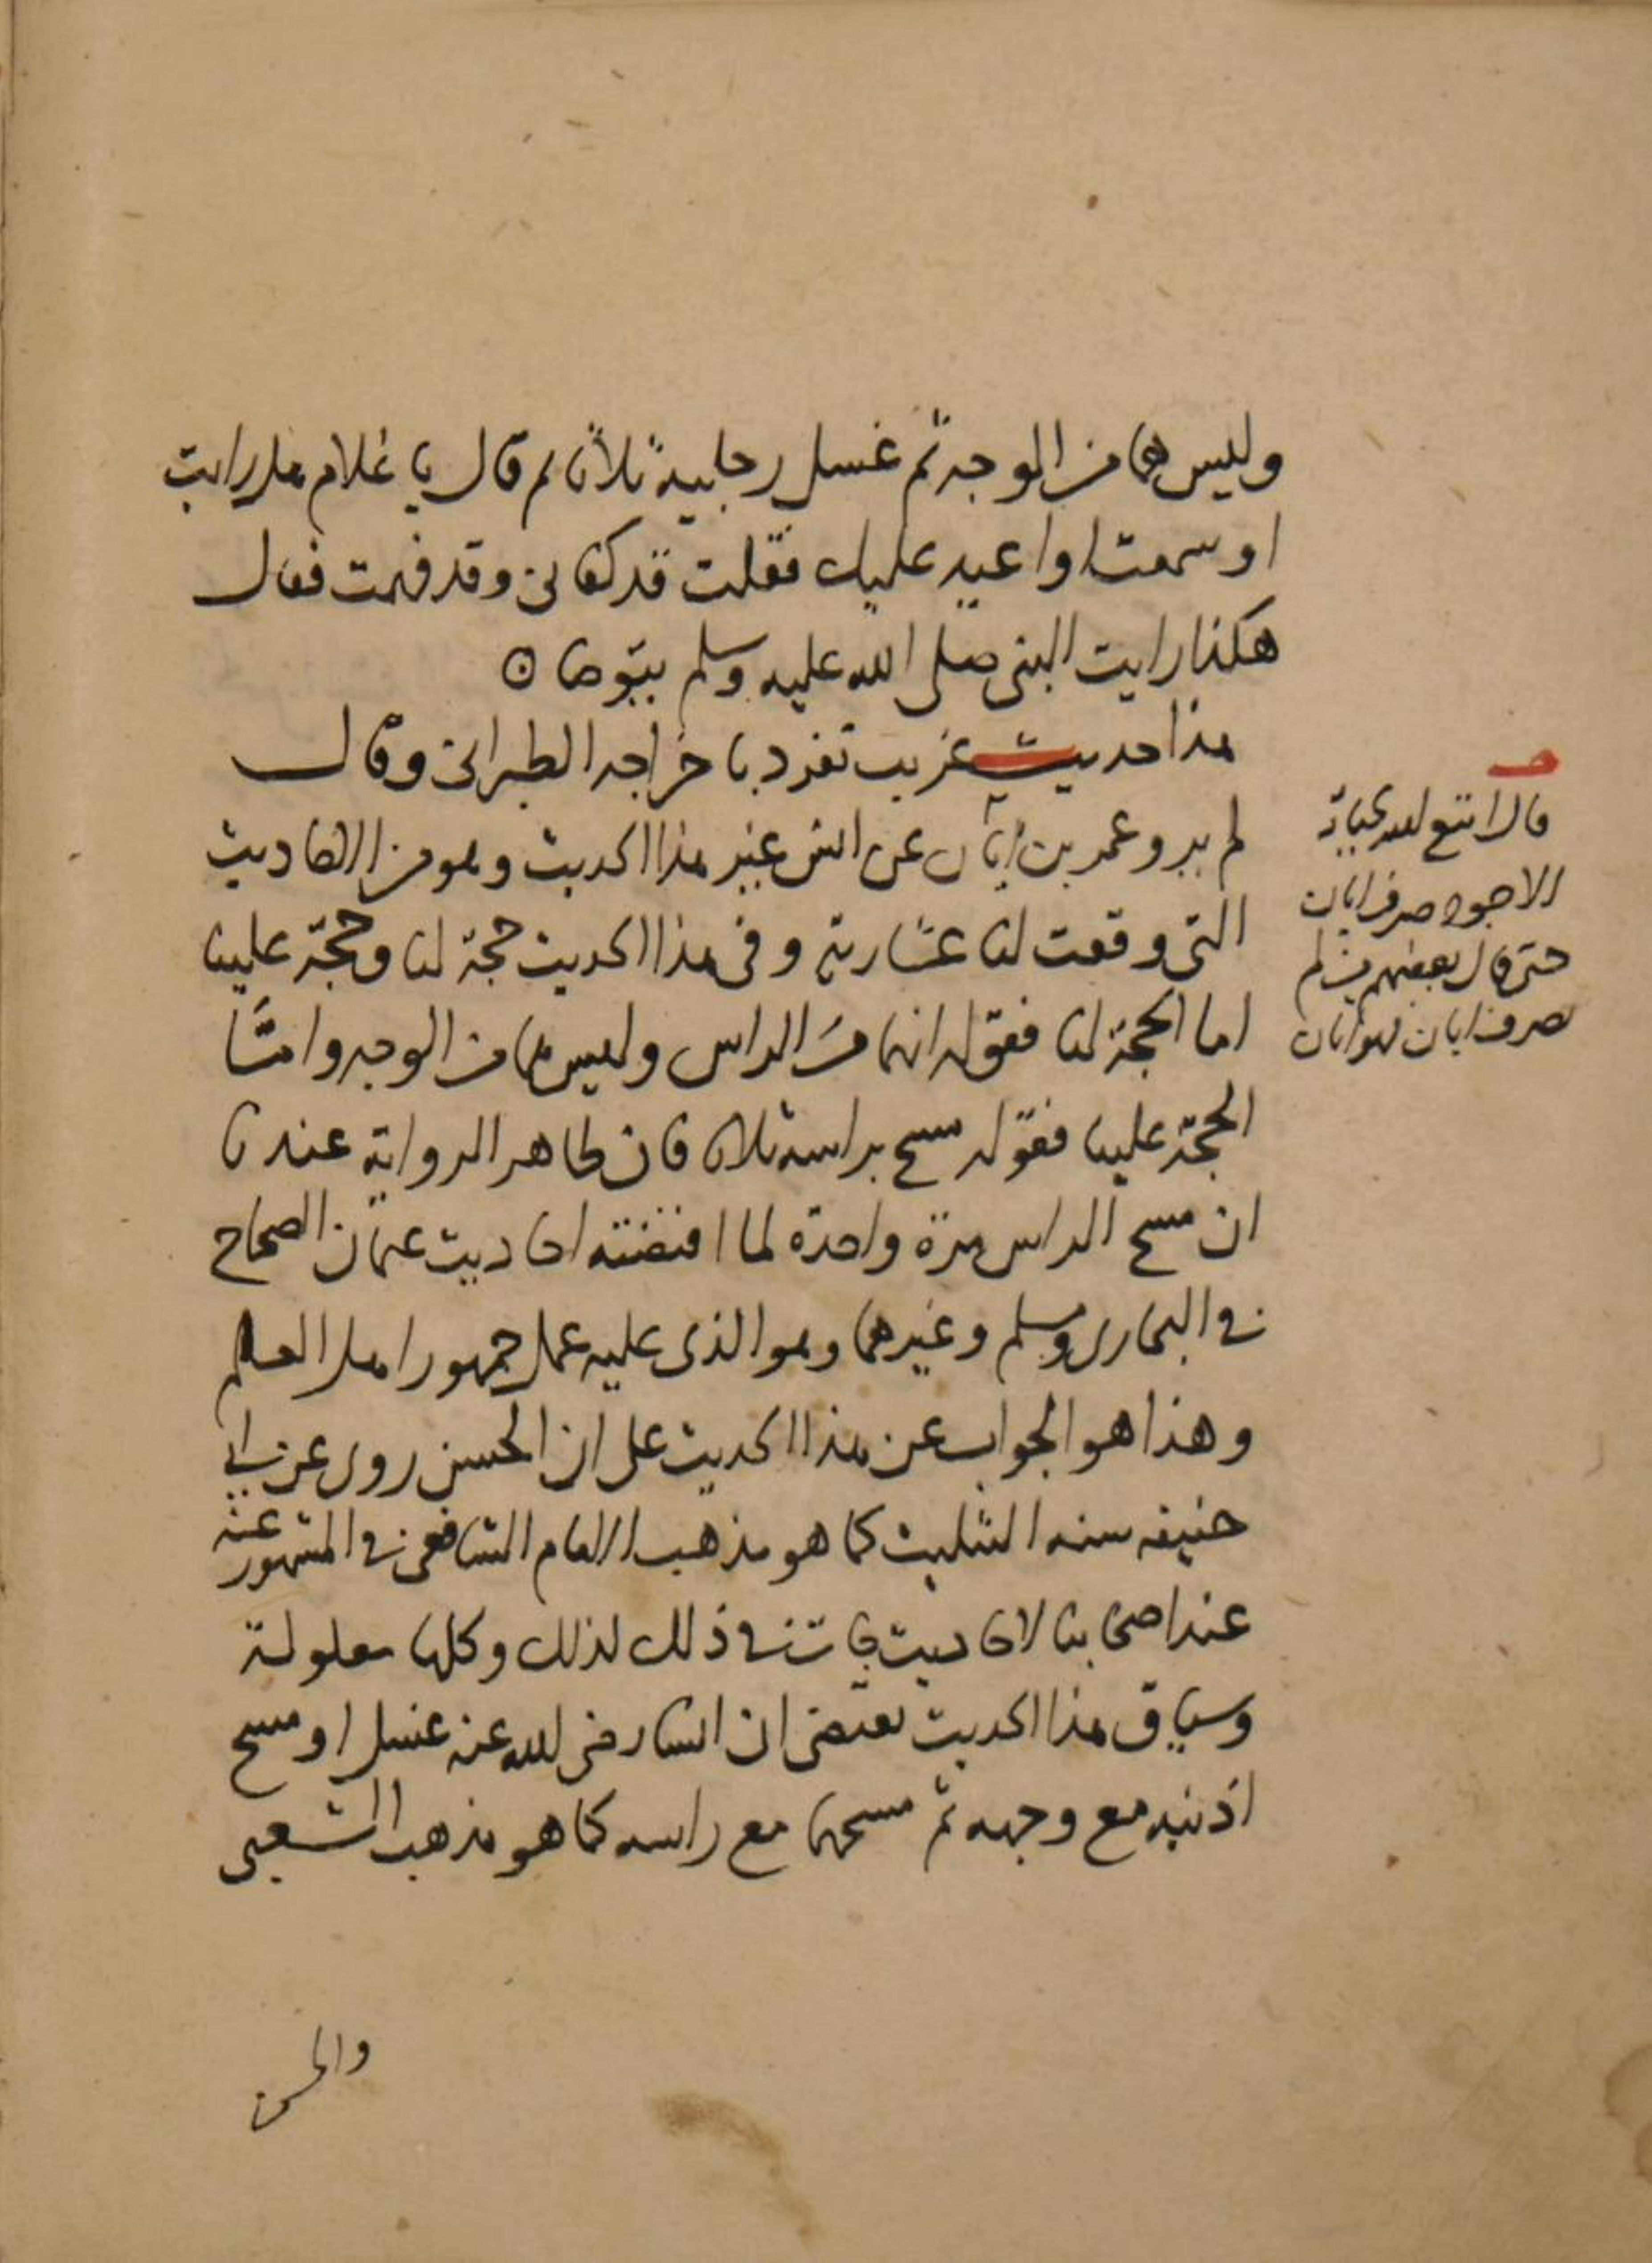 وليس هما من الوجه ثم غسل رجليه ثلاثا ثم قال يا غلام هل رايت
او سمعت او اعيد عليك فقلت قد كفاني وقد فهمت فقال
هكذا رايت النبي صلى الله عليه وسلم يتوضا ه
هذا حديث غريب تفرد باخراجه الطبراني وقال
لم يرو عمر بن ابان عن انس غير هذا الحديث وهو من الاحاديث
التي وقعت لنا عشارية وفي هذا الحديث حجة لنا وحجة علينا
اما الحجة لنا فقوله انهما من الراس وليس هما من الوجه وامّا
الحجة علينا فقوله مسح براسه ثلاثا فان ظاهر الرواية عندنا
ان مسح الراس مرة واحدة لما اقتضته احاديث عثمان الصحاح
في البخاري ومسلم وغيرهما وهو الذي عليه عمل جمهور اهل العلم
وهذا هو الجواب عن هذا الحديث على ان الحسن روى عن ابي
حنيفه سنه التثليث كما هو مذهب الامام الشافعي في المشهور عنه
عند اصحابنا لاحاديث جات في ذلك لذلك وكلها معلولة
وسياق هذا الحديث يقتضي ان انسا رضي الله عنه غسل او مسح
اذنيه مع وجهه ثم مسحهما مع راسه كما هو مذهب الشعبي
والحسن
قال امتع الله بحياته
الاجود صرف ابان
حتى قال بعضهم من لم
يصرف ابان فهو اتان